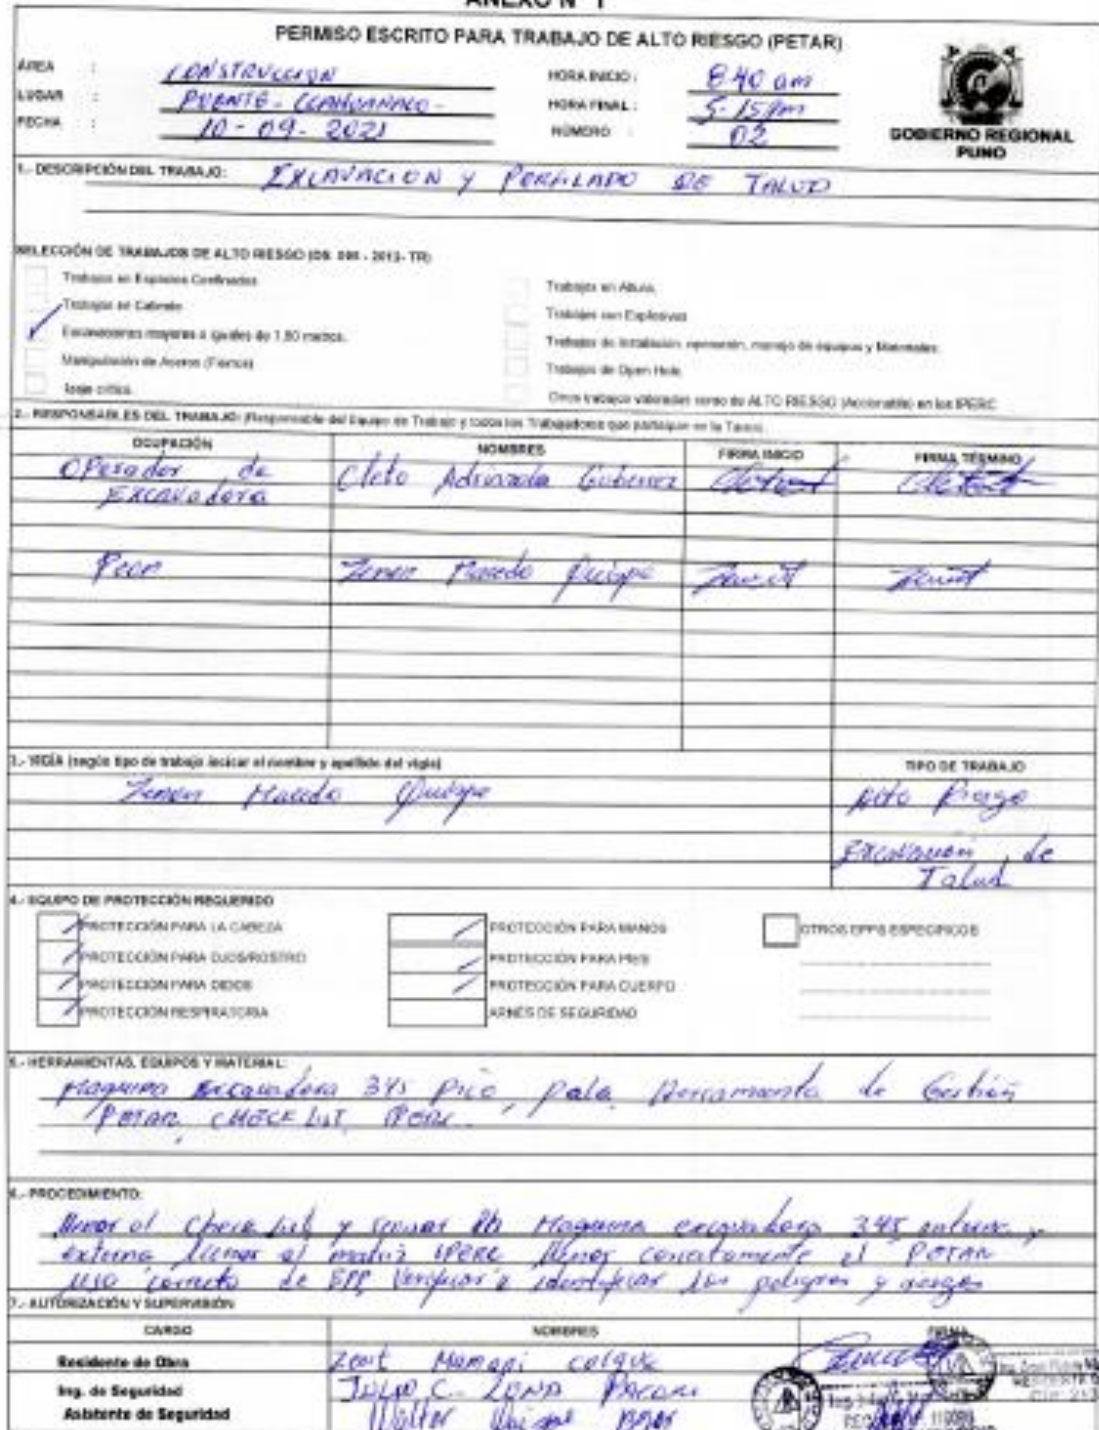 ANEXO N° 1
PERMISO ESCRITO PARA TRABAJO DE ALTO RIESGO (PETAR)
ÁREA : CONSTRUCCION HORA INICIO : 8:40 am
LUGAR : PUENTE - CCAHUANACO - HORA FINAL : 5-15 pm
FECHA : 10 - 09 - 2021 NÚMERO : 02
GOBIERNO REGIONAL
PUNO
1.- DESCRIPCIÓN DEL TRABAJO: EXCAVACION y PERFILADO DE TALUD
SELECCIÓN DE TRABAJOS DE ALTO RIESGO (DS. 005 - 2012- TR)
Trabajos en Espacios Confinados
Trabajos en Caliente
Excavaciones mayores o iguales de 1.50 metros.
Manipulación de Aceros (Fierros)
Izaje crítico.
Trabajos en Altura.
Trabajos con Explosivos
Trabajos de instalación, operación, manejo de equipos y Materiales.
Trabajos de Open Hole.
Otros trabajos valorados como de ALTO RIESGO (Accionable) en los IPERC
2.- RESPONSABLES DEL TRABAJO: (Responsable del Equipo de Trabajo y todos los Trabajadores que participan en la Tarea)
OCUPACIÓN NOMBRES FIRMA INICIO FIRMA TÉRMINO
Operador de Cleto Gutierrez
Excavadora
Peon Zenon Macedo Quispe
3.- VIGÍA (según tipo de trabajo indicar el nombre y apellido del vigía) TIPO DE TRABAJO
Zenon Macedo Quispe Alto Riesgo
Excavación de
Talud
4.- EQUIPO DE PROTECCIÓN REQUERIDO
PROTECCIÓN PARA LA CABEZA PROTECCIÓN PARA MANOS OTROS EPPS ESPECIFICOS
PROTECCIÓN PARA OJOS/ROSTRO PROTECCIÓN PARA PIES
PROTECCIÓN PARA OIDOS PROTECCIÓN PARA CUERPO
PROTECCIÓN RESPIRATORIA ARNÉS DE SEGURIDAD
5.- HERRAMIENTAS, EQUIPOS Y MATERIAL:
Maquina Excavadora 345 pico, pala, Herramienta de Gestión
PETAR, CHECK LIST, IPERC.
6.- PROCEDIMIENTO:
llenar el Check List y Maquina excavadora 345 y
externa llenar el matriz IPERC llenar correctamente el PETAR
uso correcto de EPP, Verificar e identificar los peligros y riesgos
7.- AUTORIZACIÓN Y SUPERVISIÓN
CARGO NOMBRES FIRMA
Residente de Obra Mamani Colque
Ing. de Seguridad JULIO C. LUNA PACORI
Asistente de Seguridad Walter Quispe